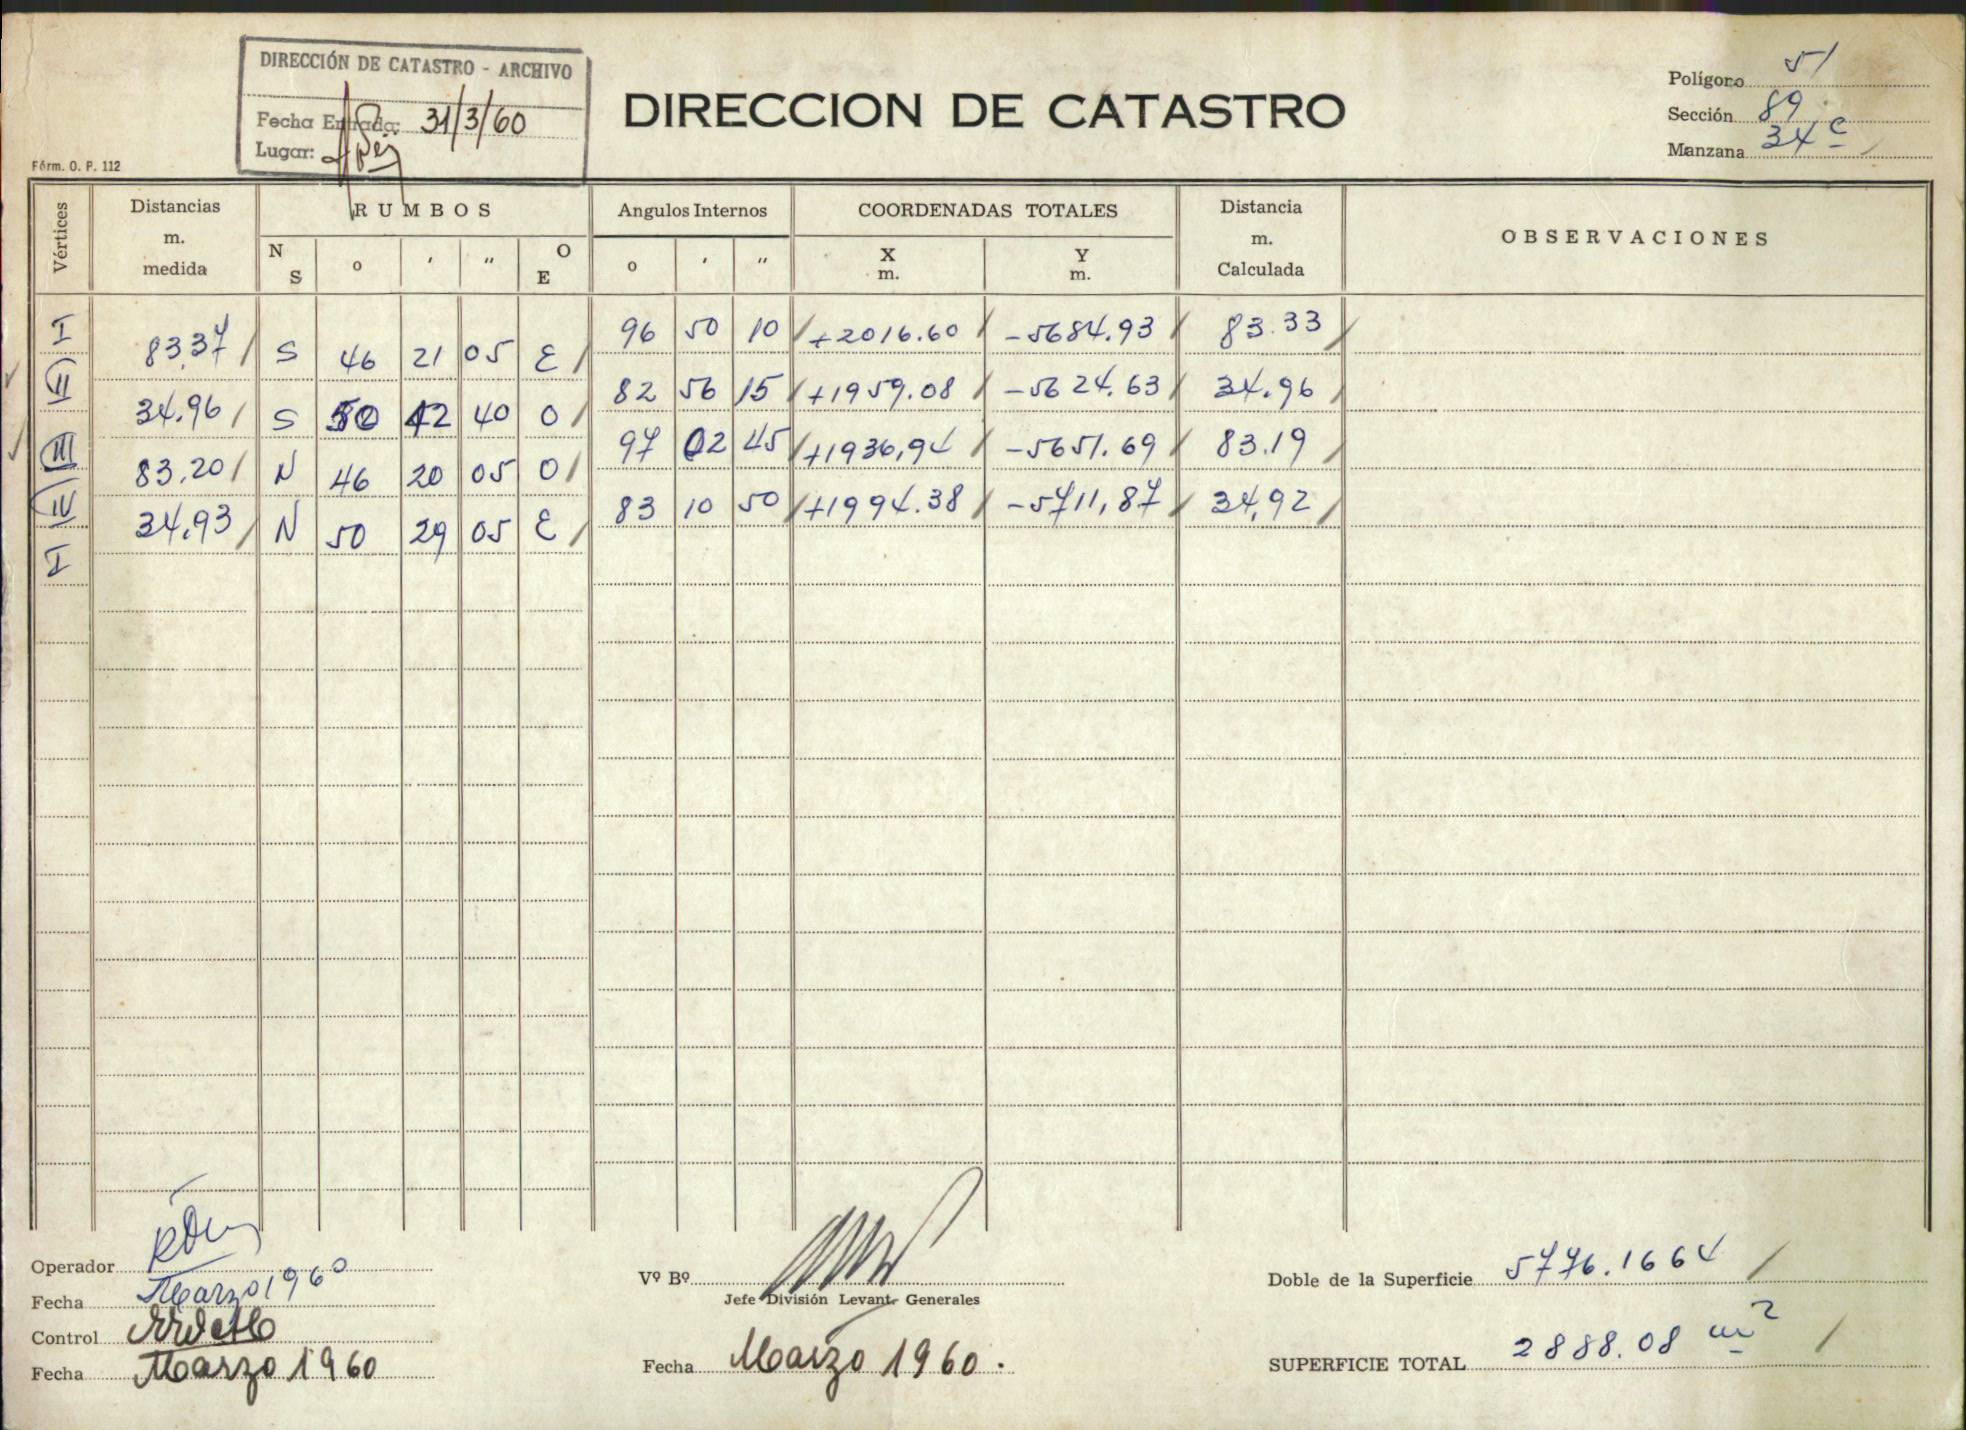 DIRECCIÓN DE CATASTRO - ARCHIVO
Fecha Entrada: 31/3/60
Lugar:
DIRECCION DE CATASTRO
Polígono 51
Sección 89
Manzana 34 c
Fórm. O. P. 112
Vértices
Distancias m. medida
RUMBOS
N S o ′ ″ O E
Angulos Internos
o ′ ″
COORDENADAS TOTALES
X m. Y m.
Distancia m. Calculada
OBSERVACIONES
I 96 50 10 +2016.60 -5684.93 83.33
83,37 S 46 21 05 E
II 82 56 15 +1959.08 -5624.63 34.96
34.96 S 50 42 40 O
III 97 02 45 +1936,94 -5651.69 83.19
83.20 N 46 20 05 O
IV 83 10 50 +1994.38 -5711,87 34,92
34.93 N 50 29 05 E
I
Operador
Fecha Marzo 1960
Control
Fecha Marzo 1960
Vº Bº
Jefe División Levant. Generales
Fecha Marzo 1960.
Doble de la Superficie 5776.1664
SUPERFICIE TOTAL 2888.08 m²